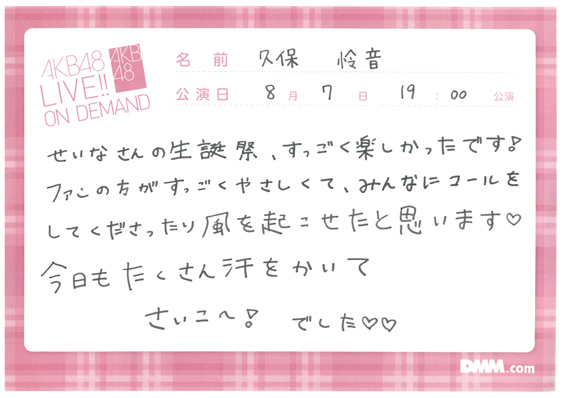 AKB48
LIVE!!
ON DEMAND
AKB
48
名 前 久保 怜音
公演日 8月 7日 19:00 公演
せいなさんの生誕祭、すっごく楽しかったです!
ファンの方がすっごくやさしくて、みんなにコールを
してくださったり風を起こせたと思います♡
今日もたくさん汗をかいて
さいこ〜! でした♡♡
DMM.com